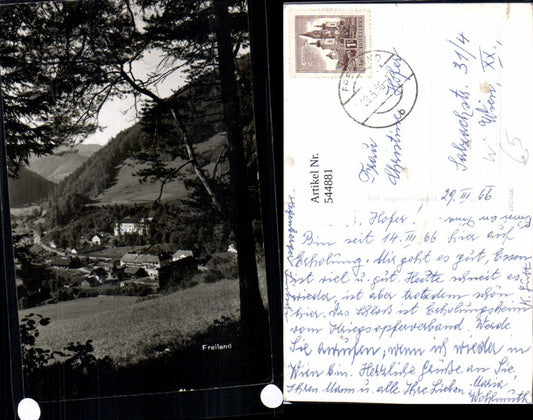 Freiland
Artikel Nr.
544881
Frau
Christine Hofer
Salzachstr. 31/4
Wien XX.,
29. III. 66
Hofer!
Bin seit 14. III. 66 hier auf
Erholung. Mir geht es gut, Essen
ist viel u. gut. Heute schneit es
wieder, ist aber trotzdem schön
hier. Das Schloß ist Erholungsheim
vom Kriegsopferverband. Werde
Sie anrufen, wenn ich wieder in
Wien bin. Herzliche Grüße an Sie,
Ihren Mann u. alle Ihre Lieben. Maria
Wohlmuth